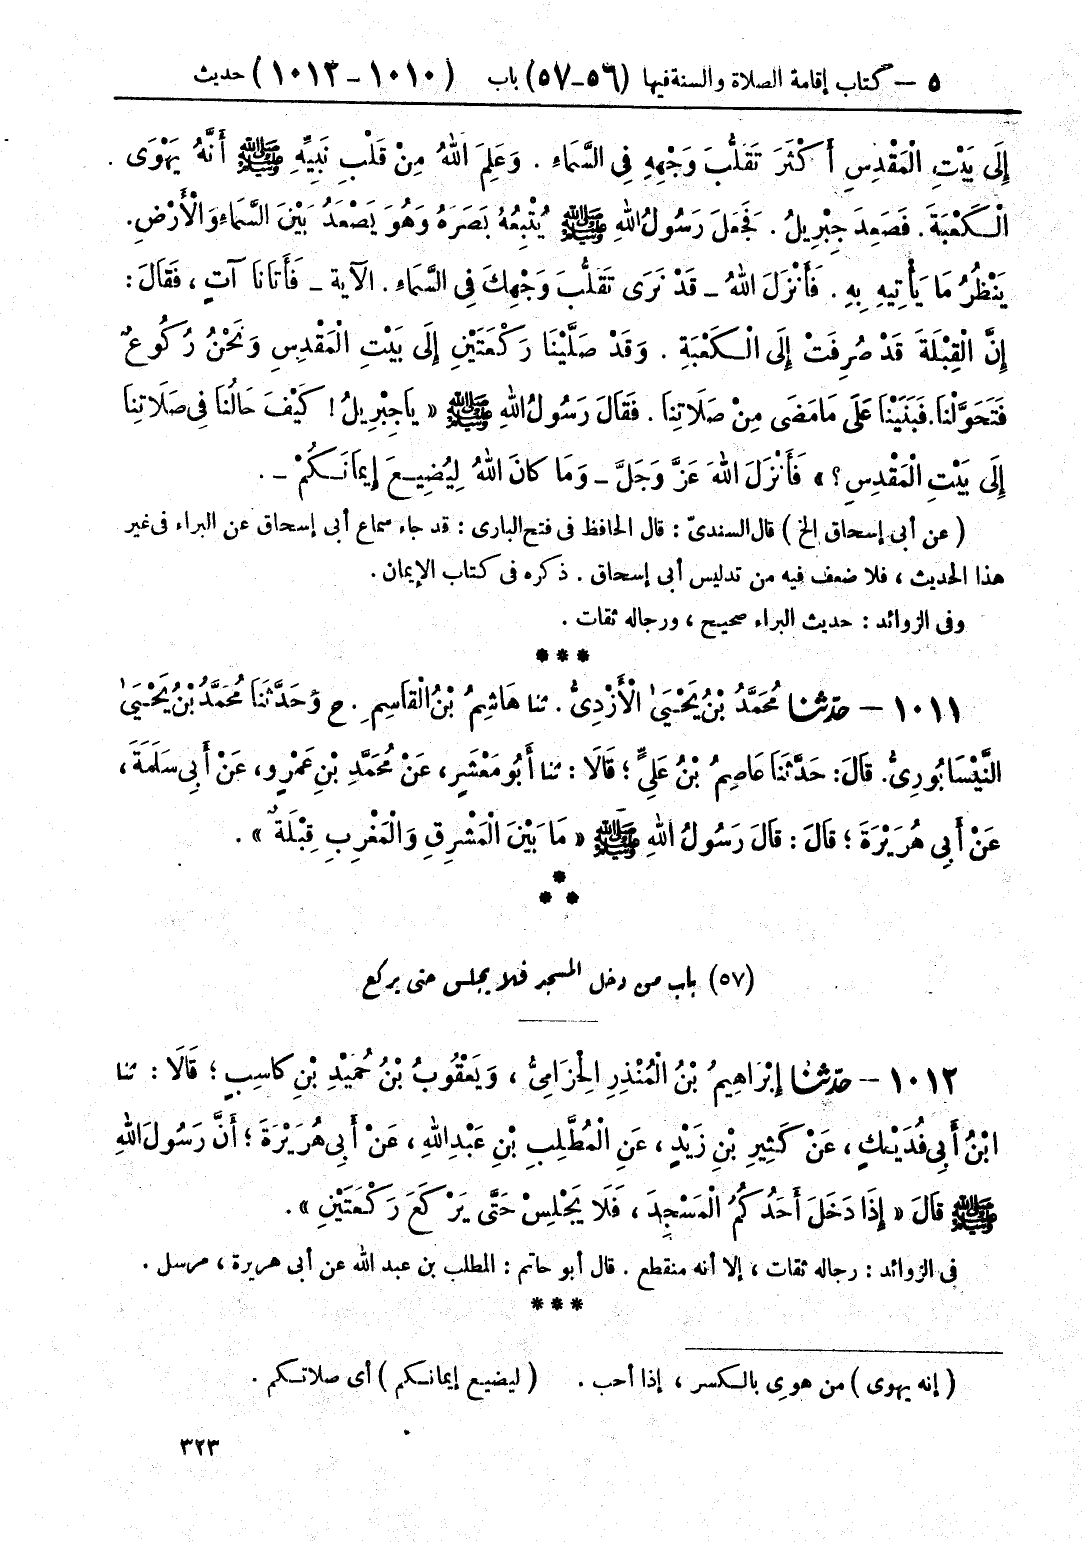 ٥ – كتاب إقامة الصلاة والسنة فيها (٥٦–٥٧) باب (١٠١٠–١٠١٢) حديث
إِلَى بَيْتِ الْمَقْدِسِ أَكْثَرَ تَقَلُّبَ وَجْهِهِ فِي السَّمَاءِ . وَعَلِمَ اللهُ مِنْ قَلْبِ نَبِيِّهِ ﷺ أَنَّهُ يَهْوَى
الْكَعْبَةَ . فَصَعِدَ جِبْرِيلُ . فَجَعَلَ رَسُولُ اللهِ ﷺ يُتْبِعُهُ بَصَرَهُ وَهُوَ يَصْعَدُ بَيْنَ السَّمَاءِ وَالْأَرْضِ.
يَنْظُرُ مَا يَأْتِيهِ بِهِ . فَأَنْزَلَ اللهُ – قَدْ نَرَى تَقَلُّبَ وَجْهِكَ فِي السَّمَاءِ . الآية – فَأَتَانَا آتٍ ، فَقَالَ :
إِنَّ الْقِبْلَةَ قَدْ صُرِفَتْ إِلَى الْكَعْبَةِ . وَقَدْ صَلَّيْنَا رَكْعَتَيْنِ إِلَى بَيْتِ الْمَقْدِسِ وَنَحْنُ رُكُوعٌ
فَتَحَوَّلْنَا. فَبَنَيْنَا عَلَى مَامَضَى مِنْ صَلَاتِنَا . فَقَالَ رَسُولُ اللهِ ﷺ « يَاجِبْرِيلُ ! كَيْفَ حَالُنَا فِي صَلَاتِنَا
إِلَى بَيْتِ الْمَقْدِسِ ؟ » فَأَنْزَلَ اللهُ عَزَّ وَجَلَّ – وَمَا كَانَ اللهُ لِيُضِيعَ إِيمَانَكُمْ – .
( عن أبى إسحاق الخ ) قال السندىّ : قال الحافظ فى فتح البارى : قد جاء سماع أبى إسحاق عن البراء فى غير
هذا الحديث ، فلا ضعف فيه من تدليس أبى إسحاق . ذكره فى كتاب الإيمان .
وفى الزوائد : حديث البراء صحيح ، ورجاله ثقات .
***
١٠١١ – حدّثنا مُحَمَّدُ بْنُ يَحْيَىٰ الْأَزْدِىُّ . ثنا هَاشِمُ بْنُ الْقَاسِمِ . ح وَحَدَّثَنَا مُحَمَّدُ بْنُ يَحْيَىٰ
النَّيْسَابُورِىُّ. قَالَ: حَدَّثَنَا عَاصِمُ بْنُ عَلِيٍّ ؛ قَالَا : ثنا أَبُو مَعْشَرٍ، عَنْ مُحَمَّدِ بْنِ عَمْرٍو، عَنْ أَبِي سَلَمَةَ ،
عَنْ أَبِي هُرَيْرَةَ ؛ قَالَ : قَالَ رَسُولُ اللهِ ﷺ « مَا بَيْنَ الْمَشْرِقِ وَالْمَغْرِبِ قِبْلَةٌ » .
*
* *
(٥٧) باب من دخل المسجد فلا يجلس حتى يركع
١٠١٢ – حدّثنا إِبْرَاهِيمُ بْنُ الْمُنْذِرِ الْحِزَامِىُّ ، وَيَعْقُوبُ بْنُ حُمَيْدِ بْنِ كَاسِبٍ ؛ قَالَا : ثنا
ابْنُ أَبِي فُدَيْكٍ ، عَنْ كَثِيرِ بْنِ زَيْدٍ ، عَنِ الْمُطَّلِبِ بْنِ عَبْدِ اللهِ ، عَنْ أَبِي هُرَيْرَةَ ؛ أَنَّ رَسُولَ اللهِ
ﷺ قَالَ « إِذَا دَخَلَ أَحَدُكُمُ الْمَسْجِدَ ، فَلَا يَجْلِسْ حَتَّى يَرْكَعَ رَكْعَتَيْنِ » .
فى الزوائد : رجاله ثقات ، إلا أنه منقطع . قال أبو حاتم : المطلب بن عبد الله عن أبى هريرة ، مرسل .
***
( إنه يهوى ) من هوِى بالكسر ، إذا أحب . ( ليضيع إيمانكم ) أى صلاتكم .
٣٢٣